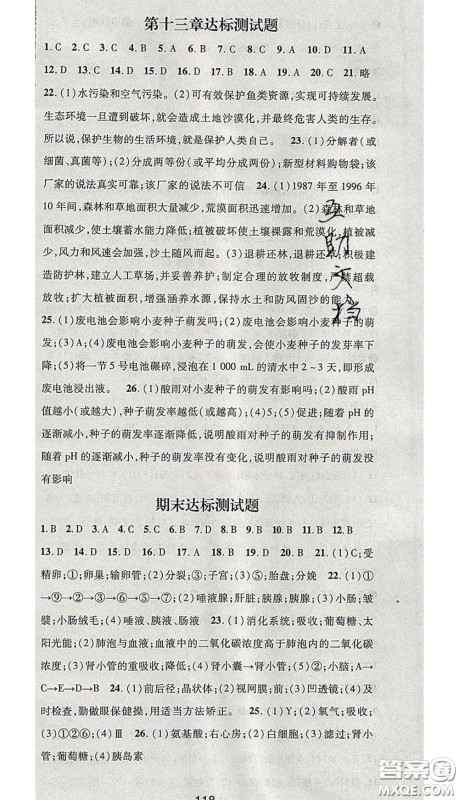 第十三章达标测试题
1. C 2. C 3. C 4. B 5. D 6. C 7. B 8. D 9. B 10. D 11. A
12. D 13. C 14. D 15. D 16. C 17. D 18. A 19. C 20. A 21. 略
22. (1)水污染和空气污染。(2)可有效保护鱼类资源,实现可持续发展。
生态环境一旦遭到破坏,就会造成土地沙漠化,并最终危害人类的生存。
所以说,保护生物的生活环境,就是保护人类自己。 23. (1)分解者(或
细菌、真菌等);(2)分成两等份(或分成两份相等);新型材料购物袋;该
厂家的说法真实可靠;该厂家的说法不可信 24. (1)1987 年至 1996 年
10 年间,森林和草地面积大量减少,荒漠面积迅速增加。(2)森林和草地
面积减少,使土壤蓄水能力降低;植被破坏使土壤裸露和荒漠化,植被减
少,风力和风速会加强,沙土随风而起。(3)退耕还林、退耕还草,积极建
造防护林,建立人工草场,并妥善养护;制定合理的放牧制度,严禁超载
放牧;扩大植被面积,增强涵养水源,保持水土和防风固沙的能力。
25. (1)废电池会影响小麦种子的萌发吗?(2)废电池会影响小麦种子的萌
发;(3)A;(4)废电池会影响小麦种子的萌发,会使小麦种子的发芽率下
降;(5)将一节 5 号电池碾碎,浸泡在 1 000 mL 的清水中 2~3 天,即形
成废电池浸出液。 26. (1)酸雨对小麦种子的萌发有影响吗?(2)酸雨 pH
值越小(或越大),种子萌发率越低(或越高);(4)(5)(6)促进;随着 pH
的逐渐减小,种子的萌发率逐渐降低,说明酸雨对种子的萌发有抑制作用;
随着 pH 的逐渐减小,种子的萌发率没有影响,说明酸雨对种子的萌发没
有影响
互助文档
期末达标测试题
1. B 2. D 3. A 4. D 5. C 6. B 7. D 8. D 9. B 10. B 11. B 12. B
13. D 14. D 15. D 16. D 17. B 18. A 19. B 20. A 21. (1)C;受
精卵;①;卵巢;输卵管;(2)分裂;③;子宫;(3)⑤;胎盘;分娩 22. (1)①
→⑨→②→③→⑥→⑦;(2)唾液腺;肝脏;胰腺;胰腺;(3)⑥;小肠;皱
襞;小肠绒毛;(4)唾液、胰液、肠液 23. (1)消化系统;吸收;葡萄糖、太
阳光能;(2)肺泡与血液;血液中的二氧化碳浓度高于肺泡内的二氧化碳
浓度;(3)肾小管的重吸收;降低;(4)肾小囊→肾小管;(5)②;小脑;A→
C→E→D→B 24. (1)前后径;晶状体;(2)视网膜;前;(3)凹透镜;(4)及
时检查,勤做眼保健操,用适当方法矫正。 25. (1)Y;(2)鸣叫、求偶、吸收;
(3)①②⑥;(4)Ⅲ 26. (1)氨基酸;右心房;(2)白细胞;(3)滤过;肾小
管;葡萄糖;(4)胰岛素
118
答案圈
MXQE.COM